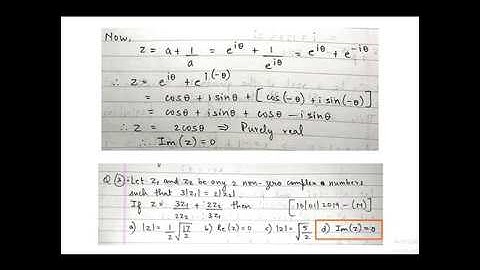 Now,
z = a + 1/a = e^{iθ} + 1/e^{iθ} = e^{iθ} + e^{-iθ}
∴ z = e^{iθ} + e^{i(-θ)}
= cosθ + i sinθ + [cos(-θ) + i sin(-θ)]
= cosθ + i sinθ + cosθ - i sinθ
∴ z = 2cosθ ⇒ Purely real
∴ Im(z) = 0
Q ③ :- Let z₁ and z₂ be any 2 non-zero complex numbers
such that 3|z₁| = 2|z₂|
If z = 3z₁/2z₂ + 2z₂/3z₁ then [10|01|2019 - (M)]
a) |z| = 1/2 √(17/2) b) Re(z) = 0 c) |z| = √(5/2) d) Im(z) = 0